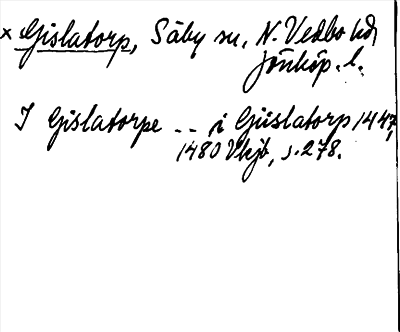 × Gislatorp, Säby sn, N. Vedbo hd,
Jönköp. l.
I Gislatorpe -- i Giislatorp 1447,
1480 Vkjb, s. 278.